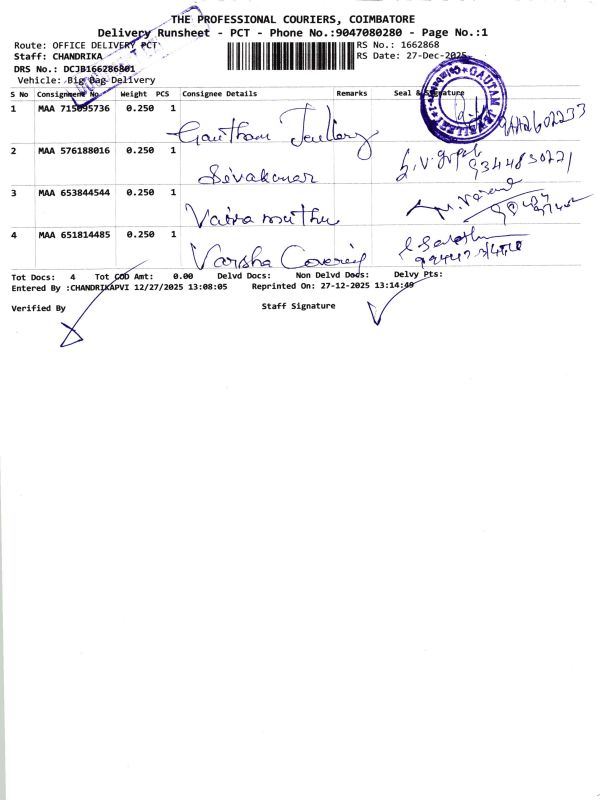 THE PROFESSIONAL COURIERS, COIMBATORE
Delivery Runsheet - PCT - Phone No.:9047080280 - Page No.:1
Route: OFFICE DELIVERY PCT
RS No.: 1662868
Staff: CHANDRIKA
RS Date: 27-Dec-2025
DRS No.: DCJB166286801
Vehicle: Big Bag Delivery
S No Consignment No. Weight PCS Consignee Details Remarks Seal & Signature
1 MAA 715695736 0.250 1
GAUTAM JEWELLERY
2 MAA 576188016 0.250 1
Sivakumar
3 MAA 653844544 0.250 1
Vairamuthu
4 MAA 651814485 0.250 1
Varsha Covering
Tot Docs: 4 Tot COD Amt: 0.00 Delvd Docs: Non Delvd Docs: Delvy Pts:
Entered By :CHANDRIKAPVI 12/27/2025 13:08:05 Reprinted On: 27-12-2025 13:14:49
Verified By
Staff Signature